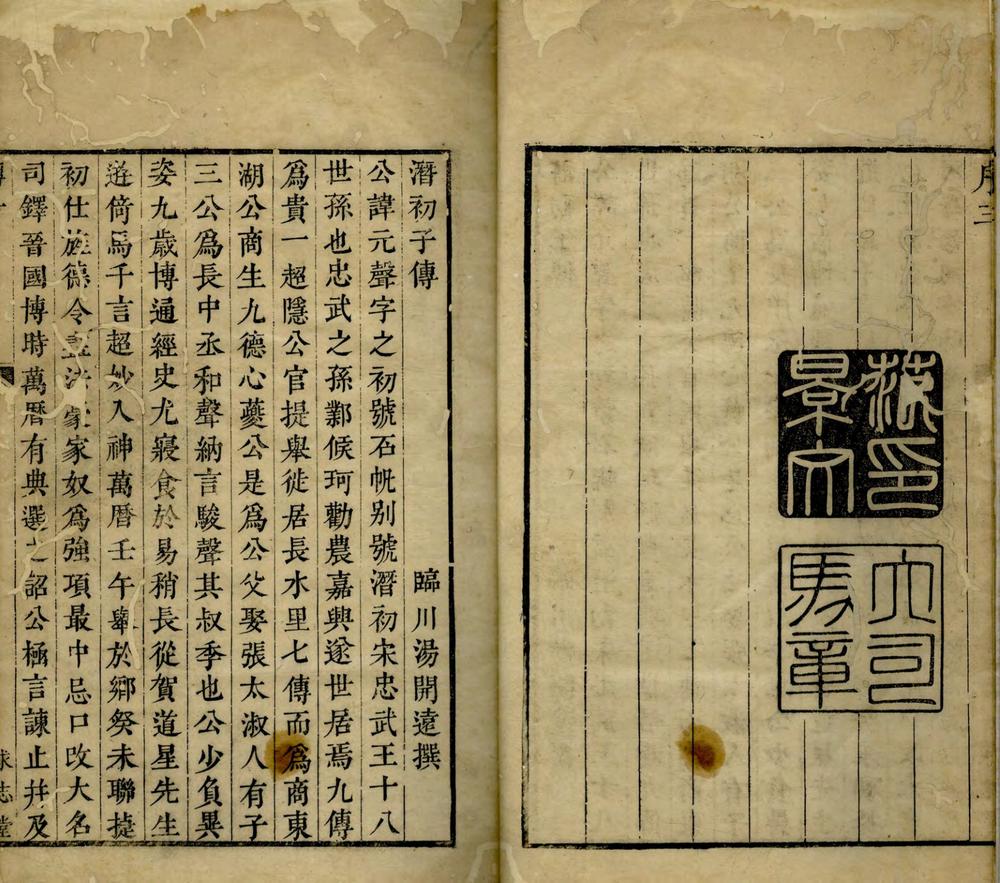 序三
范印
景文
大司
馬章
潛初子傳
臨川湯開遠撰
公諱元聲字之初號石帆别號潛初宋忠武王十八
世孫也忠武之孫鄴侯珂勸農嘉興遂世居焉九傳
爲貴一超隱公官提舉徙居長水里七傳而爲商東
湖公商生九德心夔公是爲公父娶張太淑人有子
三公爲長中丞和聲納言駿聲其叔季也公少負異
姿九歲博通經史尤寢食於易稍長從賀道星先生
遊倚馬千言超妙入神萬曆壬午舉於鄉癸未聯捷
初仕旌德令盡法豪家奴爲強項最中忌口改大名
司鐸晉國博時萬曆有典選之詔公極言諫止幷及
求志堂